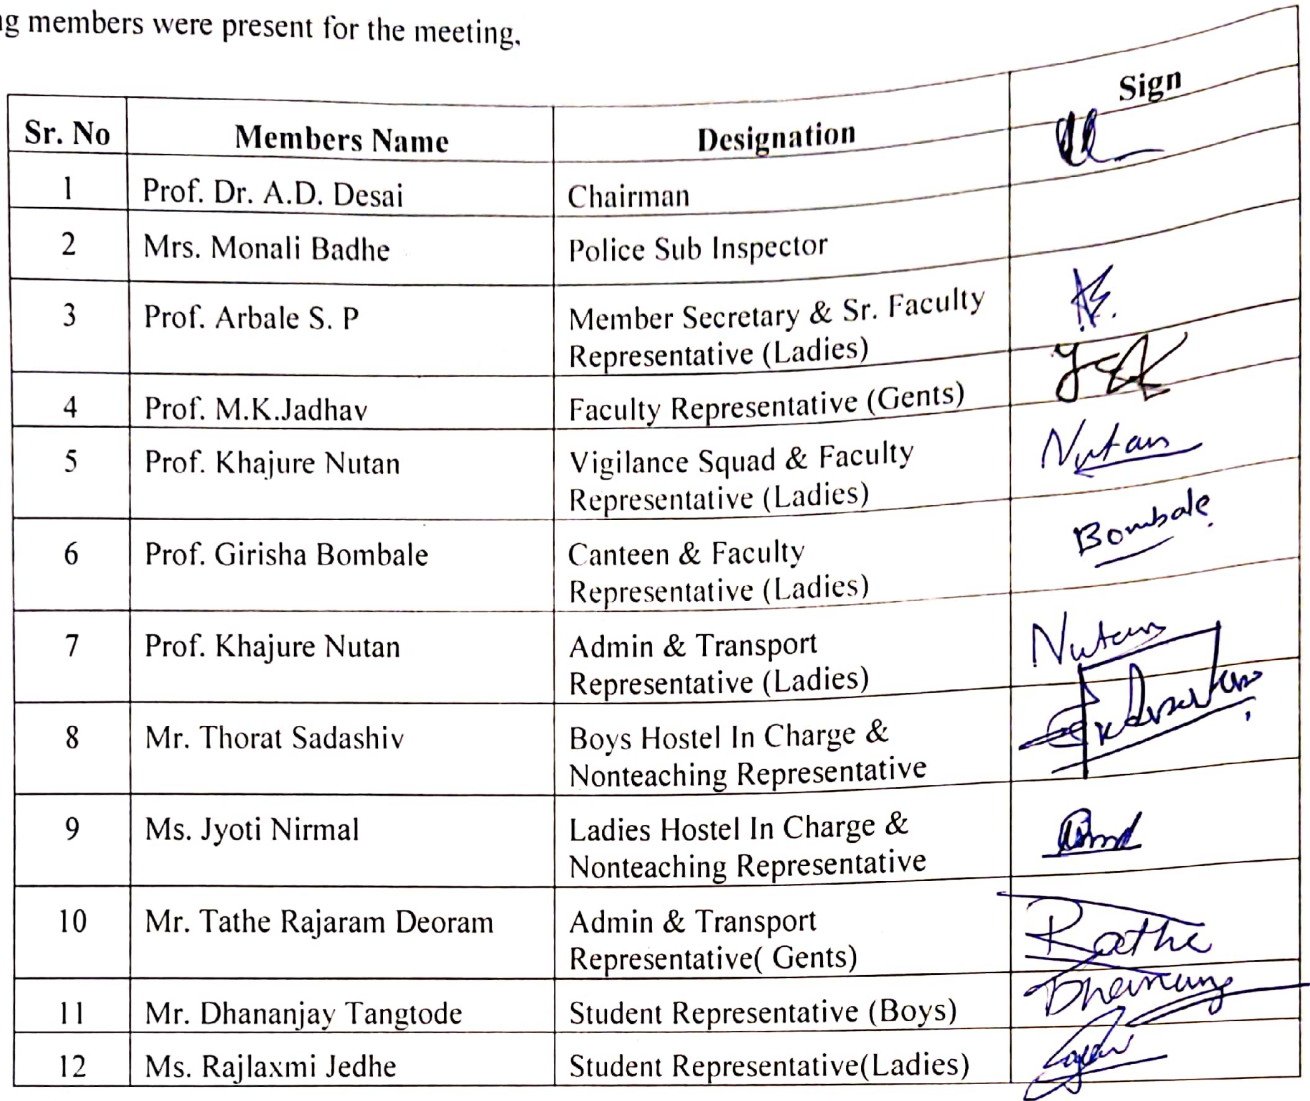 ng members were present for the meeting.
Sr. No Members Name Designation Sign
1 Prof. Dr. A.D. Desai Chairman
2 Mrs. Monali Badhe Police Sub Inspector
3 Prof. Arbale S. P Member Secretary & Sr. Faculty
Representative (Ladies)
4 Prof. M.K.Jadhav Faculty Representative (Gents)
5 Prof. Khajure Nutan Vigilance Squad & Faculty Nutan
Representative (Ladies)
6 Prof. Girisha Bombale Canteen & Faculty Bombale
Representative (Ladies)
7 Prof. Khajure Nutan Admin & Transport Nutan
Representative (Ladies)
8 Mr. Thorat Sadashiv Boys Hostel In Charge &
Nonteaching Representative
9 Ms. Jyoti Nirmal Ladies Hostel In Charge &
Nonteaching Representative
10 Mr. Tathe Rajaram Deoram Admin & Transport
Representative( Gents)
11 Mr. Dhananjay Tangtode Student Representative (Boys)
12 Ms. Rajlaxmi Jedhe Student Representative(Ladies)